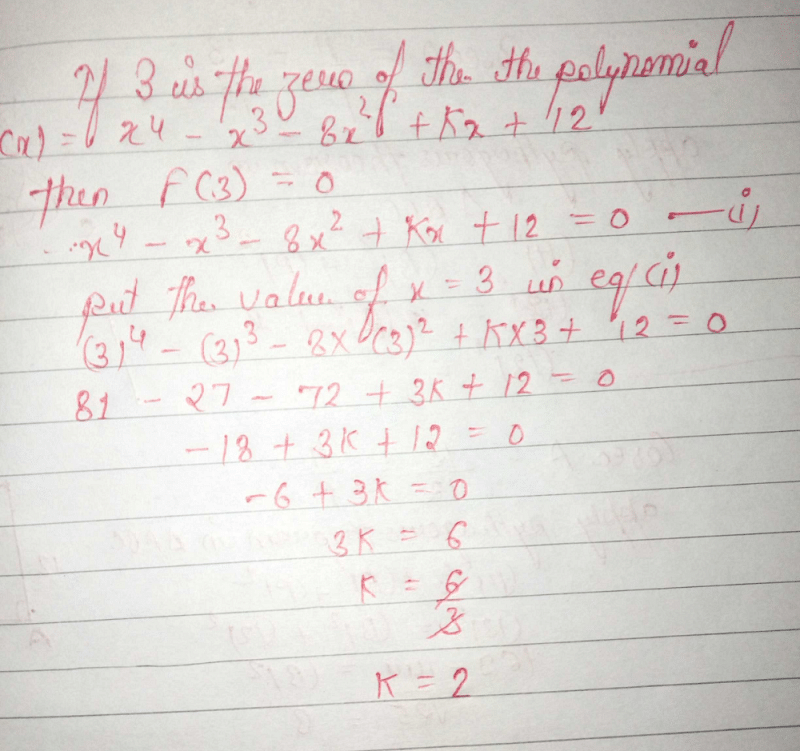 If 3 is the zero of the the polynomial
(x) = x⁴ - x³ - 8x² + Kx + 12
then F(3) = 0
x⁴ - x³ - 8x² + Kx + 12 = 0 —(i)
put the value of x = 3 in eq(i)
(3)⁴ - (3)³ - 8×(3)² + K×3 + 12 = 0
81 - 27 - 72 + 3K + 12 = 0
-18 + 3K + 12 = 0
-6 + 3K = 0
3K = 6
K = 6
3
K = 2